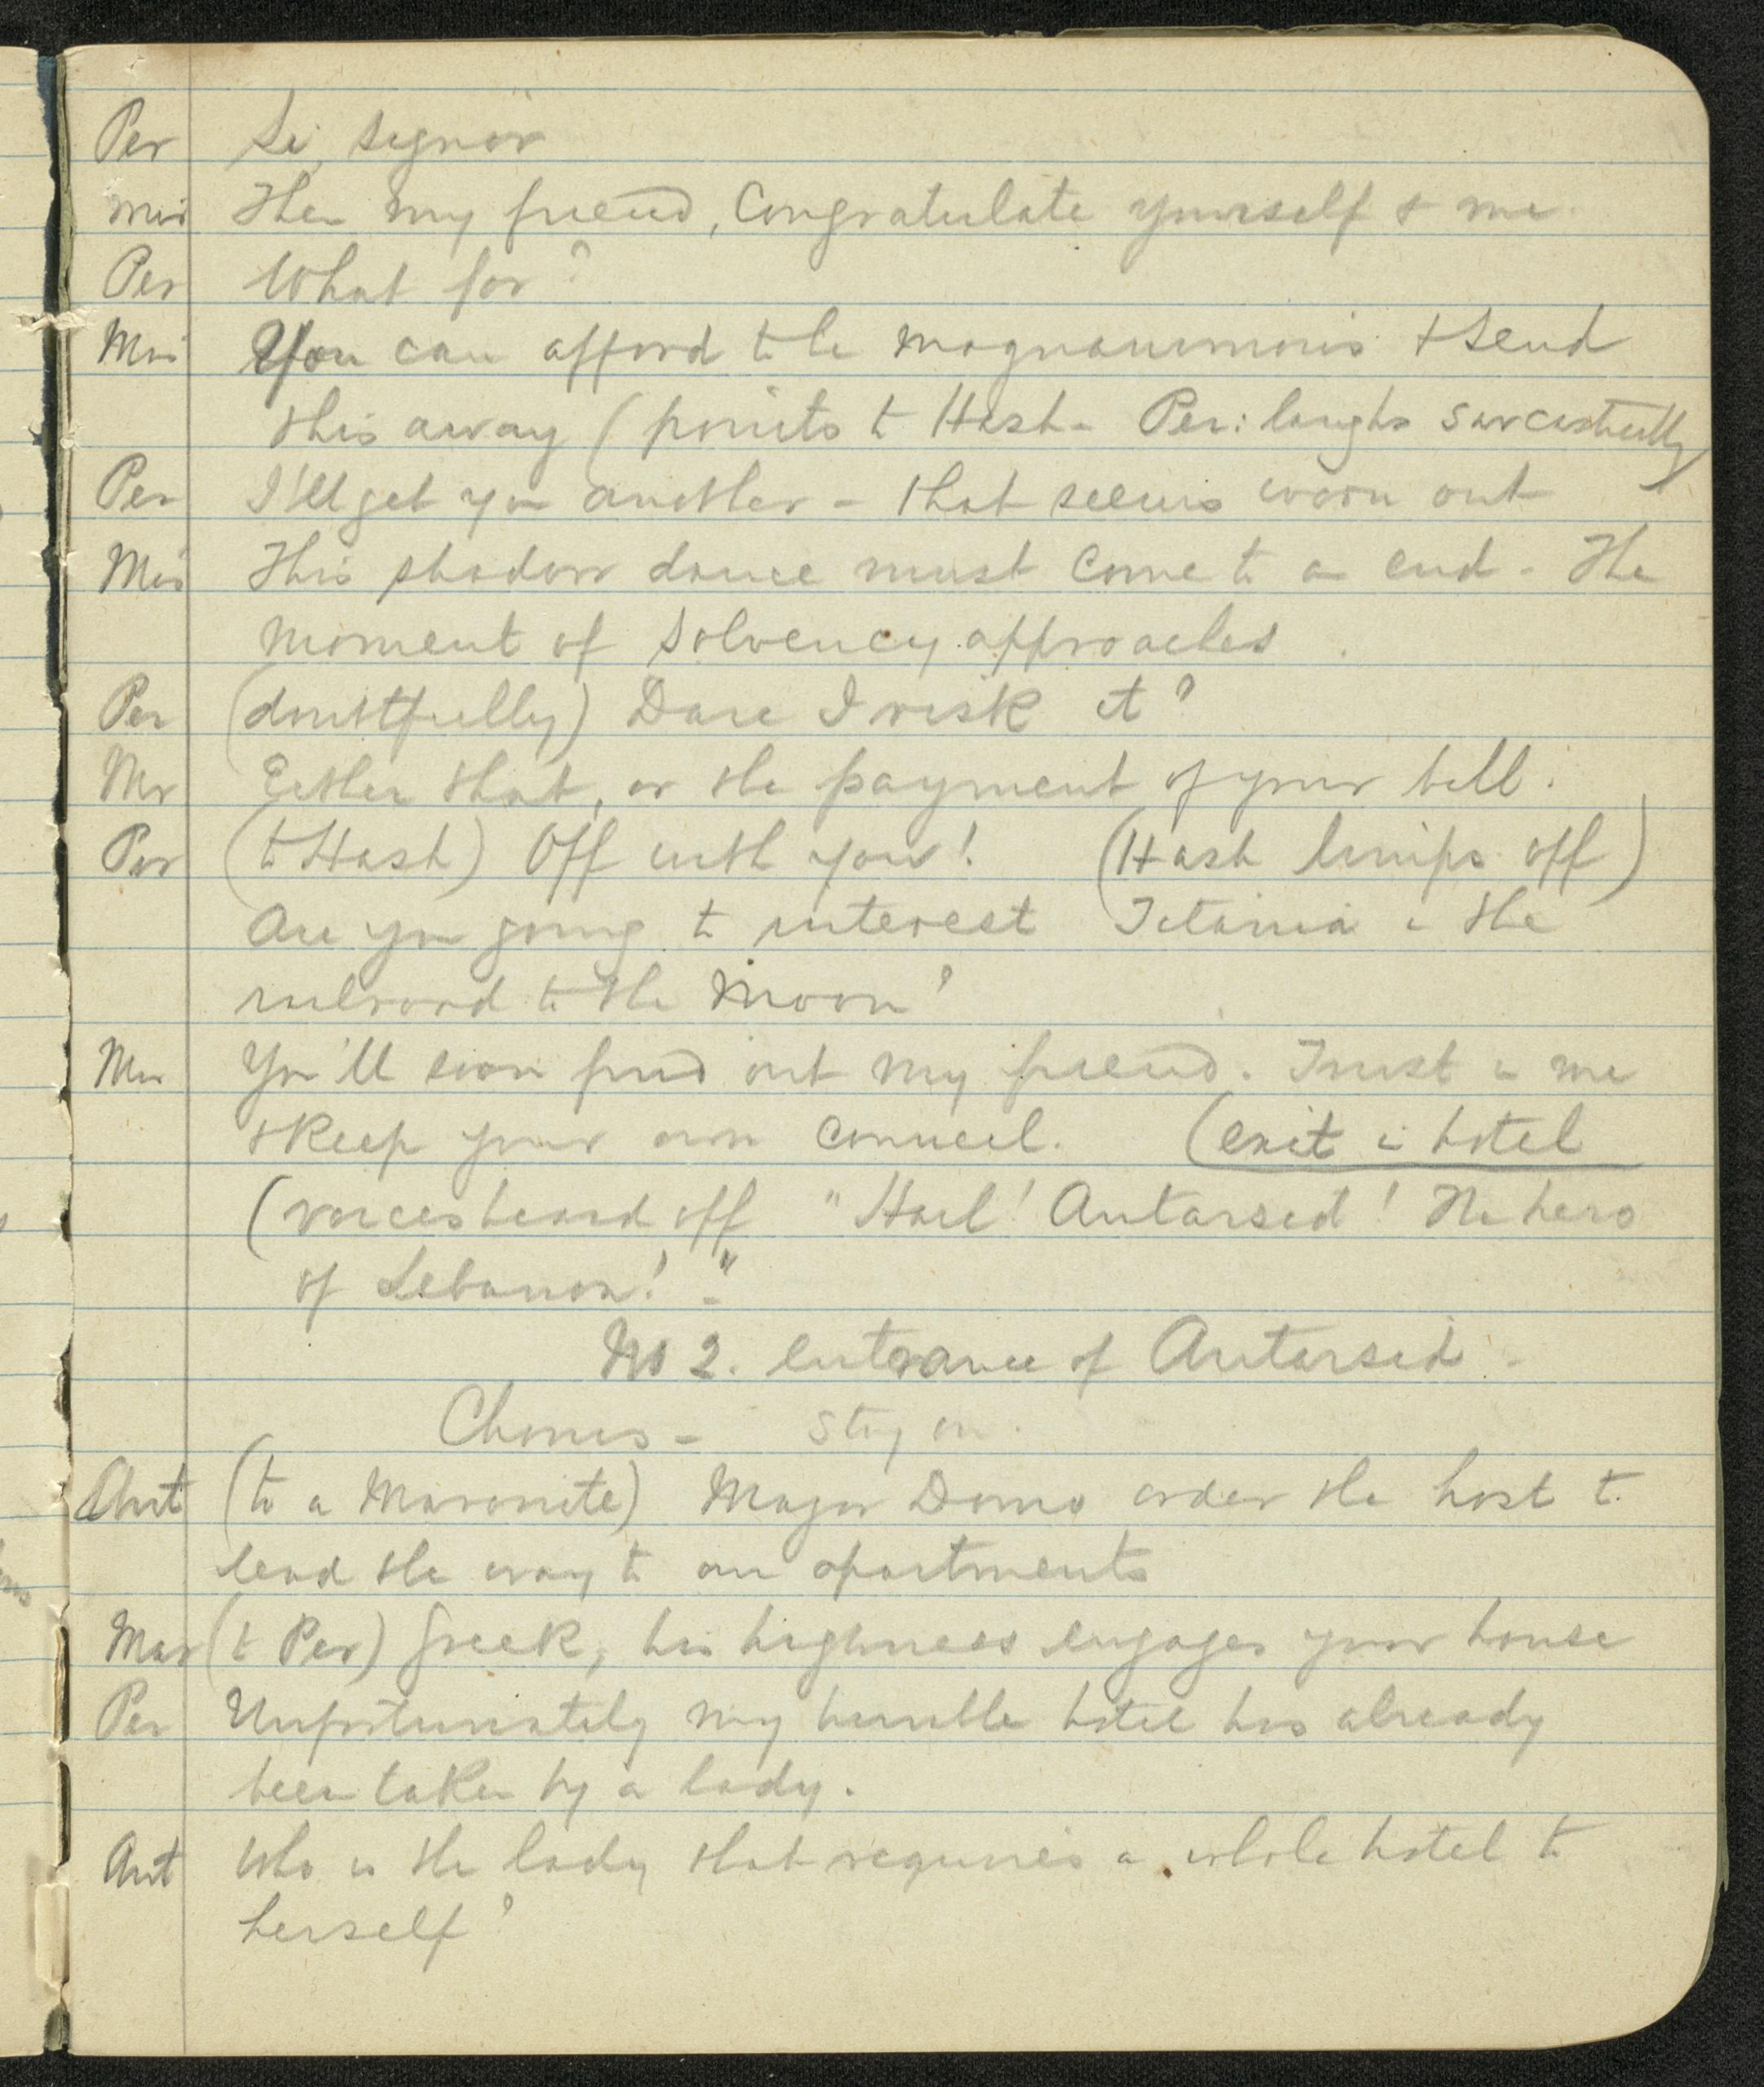 Per Si, Signor
Mir Then my friend, Congratulate yourself & me.
Per What for?
Mir You can afford to be magnanimous & send
this away (points to Hash - Per: laughs sarcastically
Per I'll get you another - that seems worn out
Mir This shadow dance must come to an end - The
moment of solvency approaches.
Per (doubtfully) Dare I risk it?
Mir Either that, or the payment of your bill.
Per (to Hash) Off with you! (Hash limps off)
Are you going to interest Titania in the
railroad to the Moon?
Mir You'll soon find out my friend. Trust in me
& Keep your own council. (exit in hotel
(voices heard off "Hail! Antarsid! The hero
of Lebanon!"-
No 2. entrance of Antarsid -
Chorus - Stay on.
Ant (to a Maronite) Major Domo order the host to
lead the way to our apartments
Mar (to Per) Greek, his highness engages your house
Per Unfortunately my humble hotel has already
been taken by a lady.
Ant Who is the lady that requires a whole hotel to
herself?